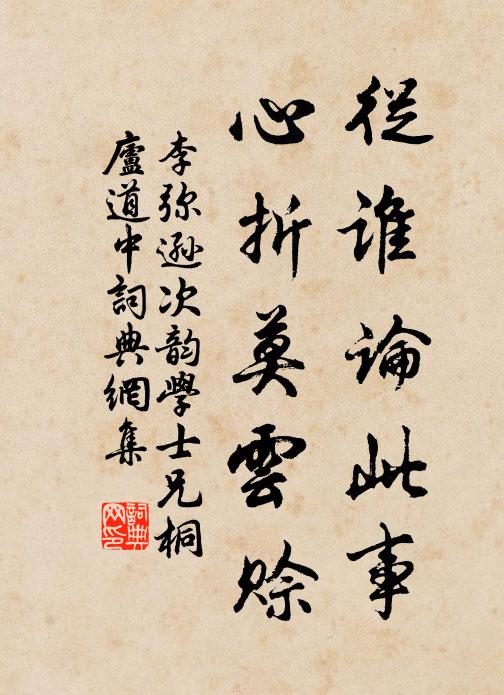 從誰論此事
心折莫雲賒
李弥遜次韵學士兄桐
廬道中詞典網集
詞典
网印